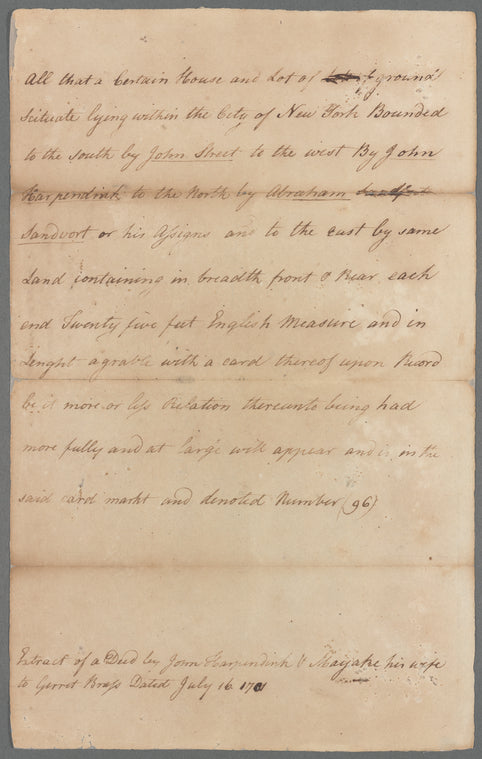 All that a Certain House and Lot of ground
Scituate lying within the City of New York Bounded
to the south by John Street to the west By John
Harpendink to the North by Abraham
Sandvort or his Assigns and to the east by same
Land containing in breadth front & Rear each
end Twenty five feet English Measure and in
Lenght agrable with a card thereof upon Record
be it more or less Relation thereunto being had
more fully and at large will appear and is in the
said card markt and denoted Number (96)
Extract of a Deed by John Harpendink & Mayake his wife
to Gerret Brass Dated July 16 1701